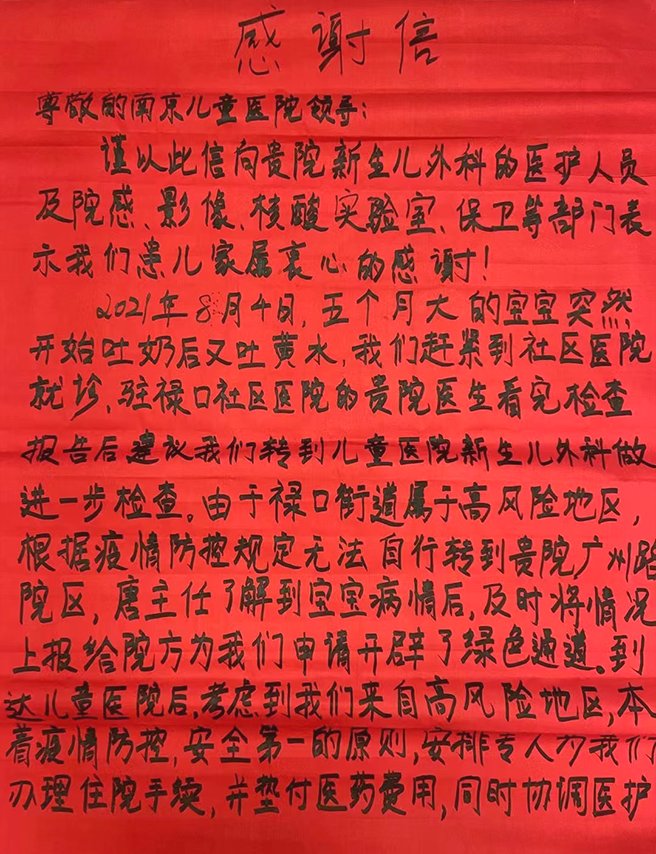 感谢信
尊敬的南京儿童医院领导:
谨以此信向贵院新生儿外科的医护人员
及院感、影像、核酸实验室、保卫等部门表
示我们患儿家属衷心的感谢!
2021年8月4日,五个月大的宝宝突然
开始吐奶后又吐黄水,我们赶紧到社区医院
就诊,驻禄口社区医院的贵院医生看完检查
报告后建议我们转到儿童医院新生儿外科做
进一步检查。由于禄口街道属于高风险地区,
根据疫情防控规定无法自行转到贵院广州路
院区,唐主任了解到宝宝病情后,及时将情况
上报给院方为我们申请开辟了绿色通道。到
达儿童医院后,考虑到我们来自高风险地区,本
着疫情防控,安全第一的原则,安排专人为我们
办理住院手续,并垫付医药费用,同时协调医护